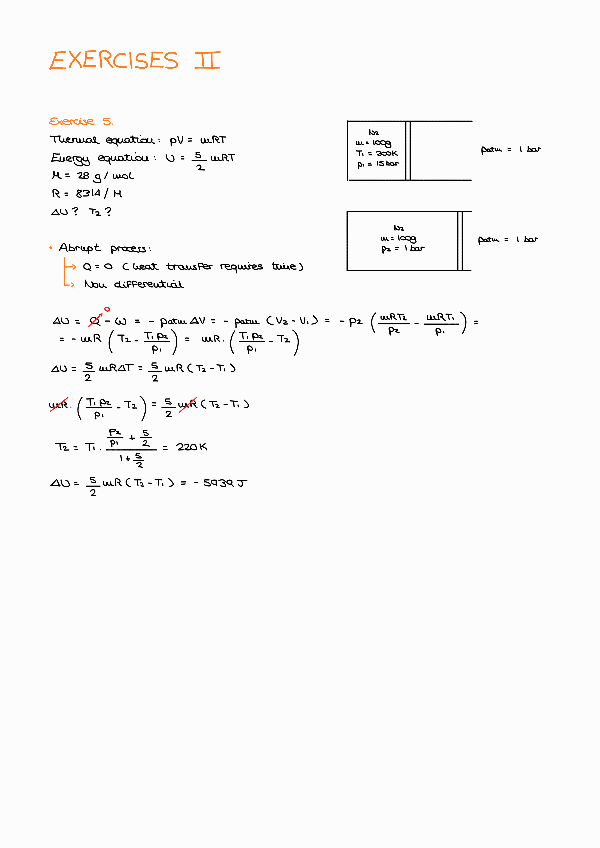 EXERCISES II
Exercise 5.
Thermal equation: pV = mRT
Energy equation: U = 5/2 mRT
M = 28 g/mol
R = 8314/M
ΔU? T₂?
N₂
m = 100g
T₁ = 300K
p₁ = 15 bar
patm = 1 bar
N₂
m = 100g
p₂ = 1 bar
patm = 1 bar
• Abrupt process:
→ Q = 0 (heat transfer requires time)
→ Non differential
ΔU = Q⁰ - W = - patm ΔV = - patm (V₂ - V₁) = - p₂ (mRT₂/p₂ - mRT₁/p₁) =
= - mR (T₂ - T₁p₂/p₁) = mR · (T₁p₂/p₁ - T₂)
ΔU = 5/2 mRΔT = 5/2 mR (T₂ - T₁)
mR · (T₁p₂/p₁ - T₂) = 5/2 mR (T₂ - T₁)
T₂ = T₁ · (p₂/p₁ + 5/2)/(1 + 5/2) = 220K
ΔU = 5/2 mR (T₂ - T₁) = - 5939 J